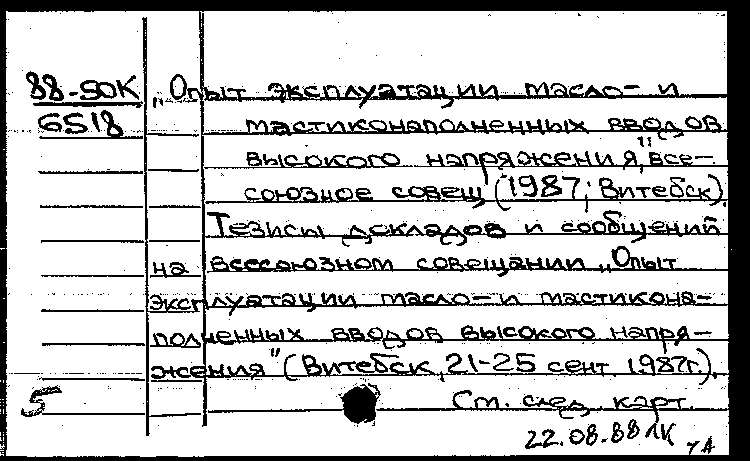 88-50К
6518
„Опыт эксплуатации масло- и
мастиконаполненных вводов
высокого напряжения", все-
союзное совещ (1987; Витебск).
Тезисы докладов и сообщений
на Всесоюзном совещании „Опыт
эксплуатации масло- и мастикона-
полненных вводов высокого напря-
жения" (Витебск, 21-25 сент. 1987г.).
5
См. след. карт.
22.08.88 ЛК